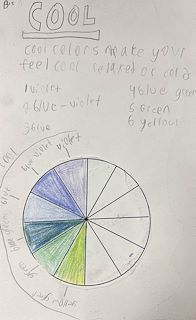 COOL
cool colors make your
feel cool relaxed or cold
1 violet
4 blue green
2 blue-violet
5 Green
3 blue
6 yellow
cool
violet
blue violet
blue
blue green
green
yellow green